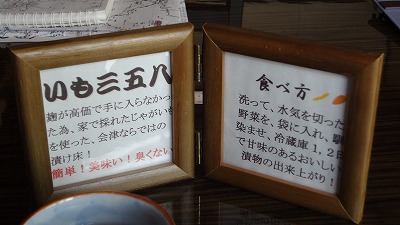 いも三五八
麹が高価で手に入らなかっ
た為、家で採れたじゃがいも
を使った、会津ならではの
漬け床！
簡単！美味い！臭くない
食べ方
洗って、水気を切った
野菜を、袋に入れ、
染ませ、冷蔵庫1，2日
で甘味のあるおいしい
漬物の出来上がり！